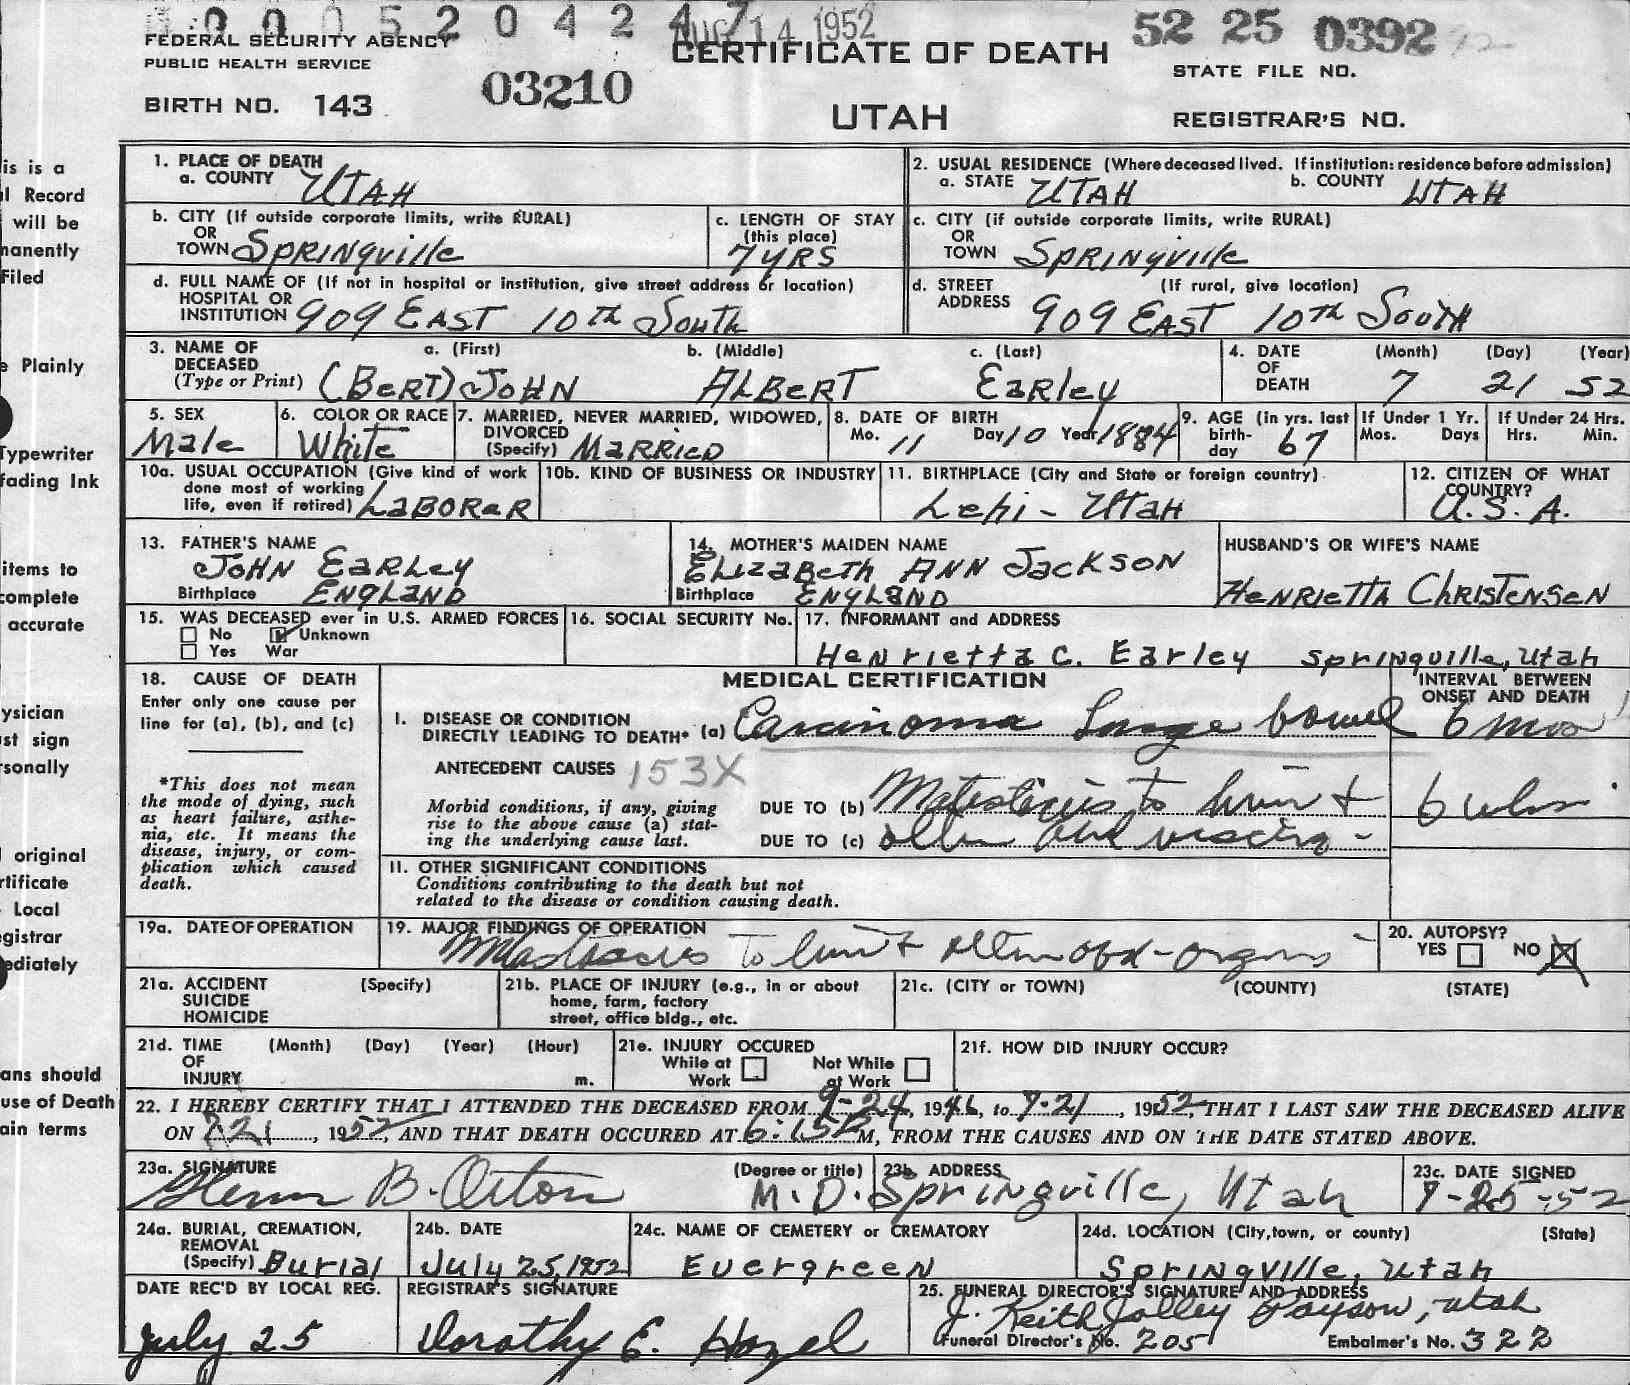 0 0 0 5 2 0 4 2 4 7
AUG 14 1952
52 25 0392
92
FEDERAL SECURITY AGENCY
PUBLIC HEALTH SERVICE
BIRTH NO. 143
03210
CERTIFICATE OF DEATH
UTAH
STATE FILE NO.
REGISTRAR'S NO.
is is a
l Record
will be
manently
Filed
e Plainly
Typewriter
fading Ink
items to
complete
accurate
ysician
st sign
rsonally
original
rtificate
Local
egistrar
ediately
ans should
use of Death
ain terms
1. PLACE OF DEATH
a. COUNTY UTAH
2. USUAL RESIDENCE (Where deceased lived. If institution: residence before admission)
a. STATE UTAH b. COUNTY UTAH
b. CITY (If outside corporate limits, write RURAL)
OR
TOWN Springville
c. LENGTH OF STAY
(this place)
7 YRS
c. CITY (if outside corporate limits, write RURAL)
OR
TOWN Springville
d. FULL NAME OF (If not in hospital or institution, give street address or location)
HOSPITAL OR
INSTITUTION 909 EAST 10th South
d. STREET (If rural, give location)
ADDRESS 909 EAST 10th South
3. NAME OF DECEASED
(Type or Print)
a. (First) b. (Middle) c. (Last)
(BERT) JOHN ALBERT Earley
4. DATE OF DEATH
(Month) (Day) (Year)
7 21 52
5. SEX
Male
6. COLOR OR RACE
White
7. MARRIED, NEVER MARRIED, WIDOWED,
DIVORCED
(Specify) MARRIED
8. DATE OF BIRTH
Mo. 11 Day 10 Year 1884
9. AGE (in yrs. last
birth-
day 67
If Under 1 Yr.
Mos. Days
If Under 24 Hrs.
Hrs. Min.
10a. USUAL OCCUPATION (Give kind of work
done most of working
life, even if retired) LABORER
10b. KIND OF BUSINESS OR INDUSTRY
11. BIRTHPLACE (City and State or foreign country)
Lehi - UTAH
12. CITIZEN OF WHAT
COUNTRY?
U.S.A.
13. FATHER'S NAME
JOHN EARLEY
Birthplace ENGLAND
14. MOTHER'S MAIDEN NAME
ELIZABETH ANN JACKSON
Birthplace ENGLAND
HUSBAND'S OR WIFE'S NAME
HENRIETTA CHRISTENSEN
15. WAS DECEASED ever in U.S. ARMED FORCES
No Unknown
Yes War
16. SOCIAL SECURITY No.
17. INFORMANT and ADDRESS
Henrietta C. Earley Springville, Utah
18. CAUSE OF DEATH
Enter only one cause per
line for (a), (b), and (c)
*This does not mean
the mode of dying, such
as heart failure, asthe-
nia, etc. It means the
disease, injury, or com-
plication which caused
death.
MEDICAL CERTIFICATION
INTERVAL BETWEEN
ONSET AND DEATH
I. DISEASE OR CONDITION
DIRECTLY LEADING TO DEATH* (a) Carcinoma Large bowel 6 mos
ANTECEDENT CAUSES 153X
Morbid conditions, if any, giving
rise to the above cause (a) stat-
ing the underlying cause last.
DUE TO (b) Metastasis to liver + 6 wks
DUE TO (c) other abd viscera -
II. OTHER SIGNIFICANT CONDITIONS
Conditions contributing to the death but not
related to the disease or condition causing death.
19a. DATE OF OPERATION
19. MAJOR FINDINGS OF OPERATION
Metastasis To liver + other abd-organs
20. AUTOPSY?
YES NO
21a. ACCIDENT (Specify)
SUICIDE
HOMICIDE
21b. PLACE OF INJURY (e.g., in or about
home, farm, factory
street, office bldg., etc.
21c. (CITY or TOWN) (COUNTY) (STATE)
21d. TIME (Month) (Day) (Year) (Hour)
OF
INJURY m.
21e. INJURY OCCURED
While at
Work
Not While
at Work
21f. HOW DID INJURY OCCUR?
22. I HEREBY CERTIFY THAT I ATTENDED THE DECEASED FROM 9-24, 1946, to 7-21, 1952, THAT I LAST SAW THE DECEASED ALIVE
ON 721, 1952, AND THAT DEATH OCCURED AT 6:15 PM, FROM THE CAUSES AND ON THE DATE STATED ABOVE.
23a. SIGNATURE (Degree or title)
Glenn B. Orton M.D.
23b. ADDRESS
Springville, Utah
23c. DATE SIGNED
7-25-52
24a. BURIAL, CREMATION,
REMOVAL
(Specify) Burial
24b. DATE
July 25, 1952
24c. NAME OF CEMETERY or CREMATORY
Evergreen
24d. LOCATION (City, town, or county) (State)
Springville, Utah
DATE REC'D BY LOCAL REG.
July 25
REGISTRAR'S SIGNATURE
Dorothy E. Hazel
25. FUNERAL DIRECTOR'S SIGNATURE AND ADDRESS
J. Keith Jolley Payson, Utah
Funeral Director's No. 205 Embalmer's No. 322